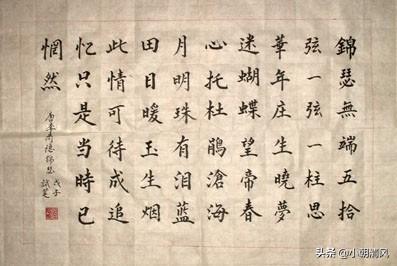 錦瑟無端五拾
弦一弦一柱思
華年庄生曉夢
迷蝴蝶望帝春
心托杜鵑滄海
月明珠有泪藍
田日暖玉生烟
此情可待成追
忆只是当時已
惘然
唐李商隱錦瑟
戊子
試笔
头条 @小朝清风